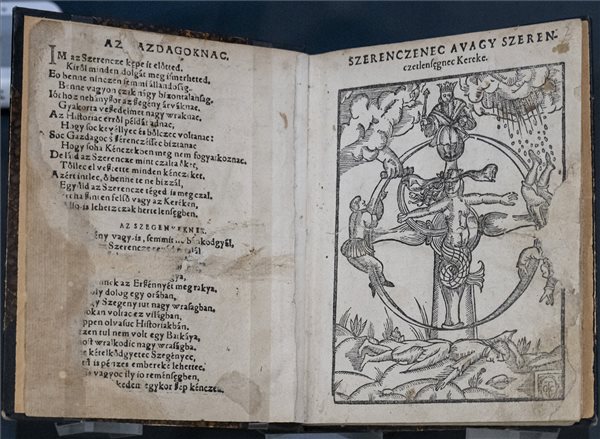 AZ AZDAGOKNAC.
IM az Szerencze kepe it elötted,
Kiröl minden dolgát meg ismerheted,
Eo benne ninczen semmi állandoság.
Benne vagyon czak nagy bizontalanság,
Iót hoz nehányszor az szegény árváknac,
Gyakorta veszedelmet nagy wraknac.
Az Historiac erröl példát adnac,
Hogy soc kevéllyec és bölczec voltanac:
Soc Gazdagoc s szerenczéssec biztanac
Hogy soha Kénczekben meg nem fogyatkoznac.
De lád az Szerencze mint czalta öket,
Töllec el veszette minden kénczeket.
Azért intlec, ö benne te ne bizzál,
Együgyü az Szerencze téged is meg czal.
ha szinten felsö vagy az Keréken,
Also is lehetz czak hertelenségben.
AZ SZEGENYEKNEK.
vagy-is, semmit bánkodgyál,
Szerencze
nek az Ersennyét meg rakya,
dolog egy orában,
Szegény iut nagy wraságban.
okan voltac ez világban,
ppen olvasuc Historiákban.
zen tul nem volt egy Batkáya,
ost wralkodic nagy wraságba.
kételködgyetec Szegényec,
is pénzes embereke lehettec.
is vagyoc ily io reménségben,
kedem egykor szep kénczem.
SZERENCZENEC AVAGY SZEREN-
czetlensegnec Kereke.